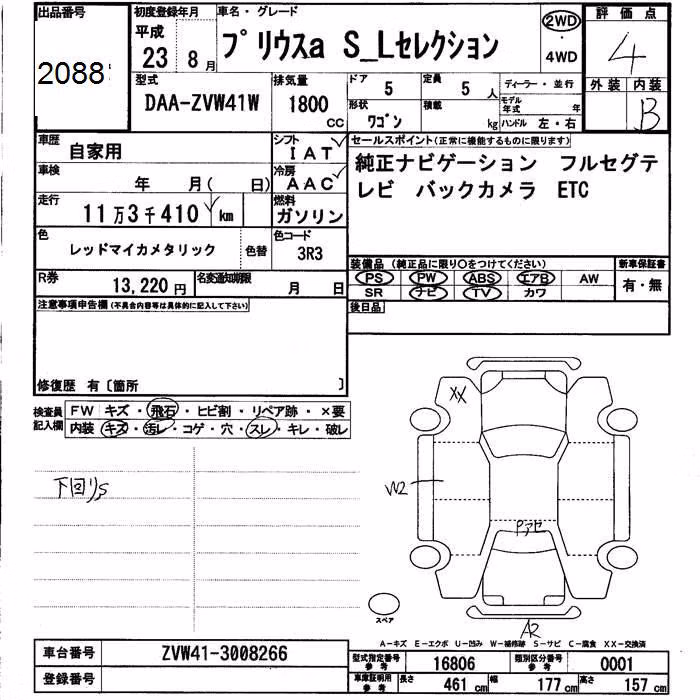 出品番号 初度登録年月 車名・グレード 2WD 評価点
2088 平成 23年 8月 プリウスα S_Lセレクション ・ 4
4WD 外装 内装
型式 排気量 ドア 5 定員 5人 ディーラー・並行 B
DAA-ZVW41W 1800 CC 形状 ワゴン 積載 kg モデル年式 年
ハンドル 左・右
車歴 自家用 シフト IAT セールスポイント(正常に機能するものに限ります)
車検 年 月( 日) 冷房 AAC 純正ナビゲーション フルセグテ
走行 11万3千410 km 燃料 ガソリン レビ バックカメラ ETC
色 レッドマイカメタリック 色替 色コード 3R3
装備品 (純正品に限り〇をつけてください) 新車保証書
R券 13,220円 名変通知期限 月 日 PS PW ABS エアB AW 有・無
SR ナビ TV カワ
注意事項申告欄(不具合内容等は具体的に記入して下さい) 後日品
修復歴 有〔箇所 〕
検査員記入欄 FW キズ・飛石・ヒビ割・リペア跡・×要
内装 キズ・汚レ・コゲ・穴・スレ・キレ・破レ
XX
下回りS
W2
Pアセ
スペア
A2
A-キズ E-エクボ U-凹み W-補修跡 S-サビ C-腐食 XX-交換済
車台番号 ZVW41-3008266 型式指定番号参考 16806 類別区分番号参考 0001
登録番号 車庫証明用参考 長さ 461cm 幅 177cm 高さ 157cm